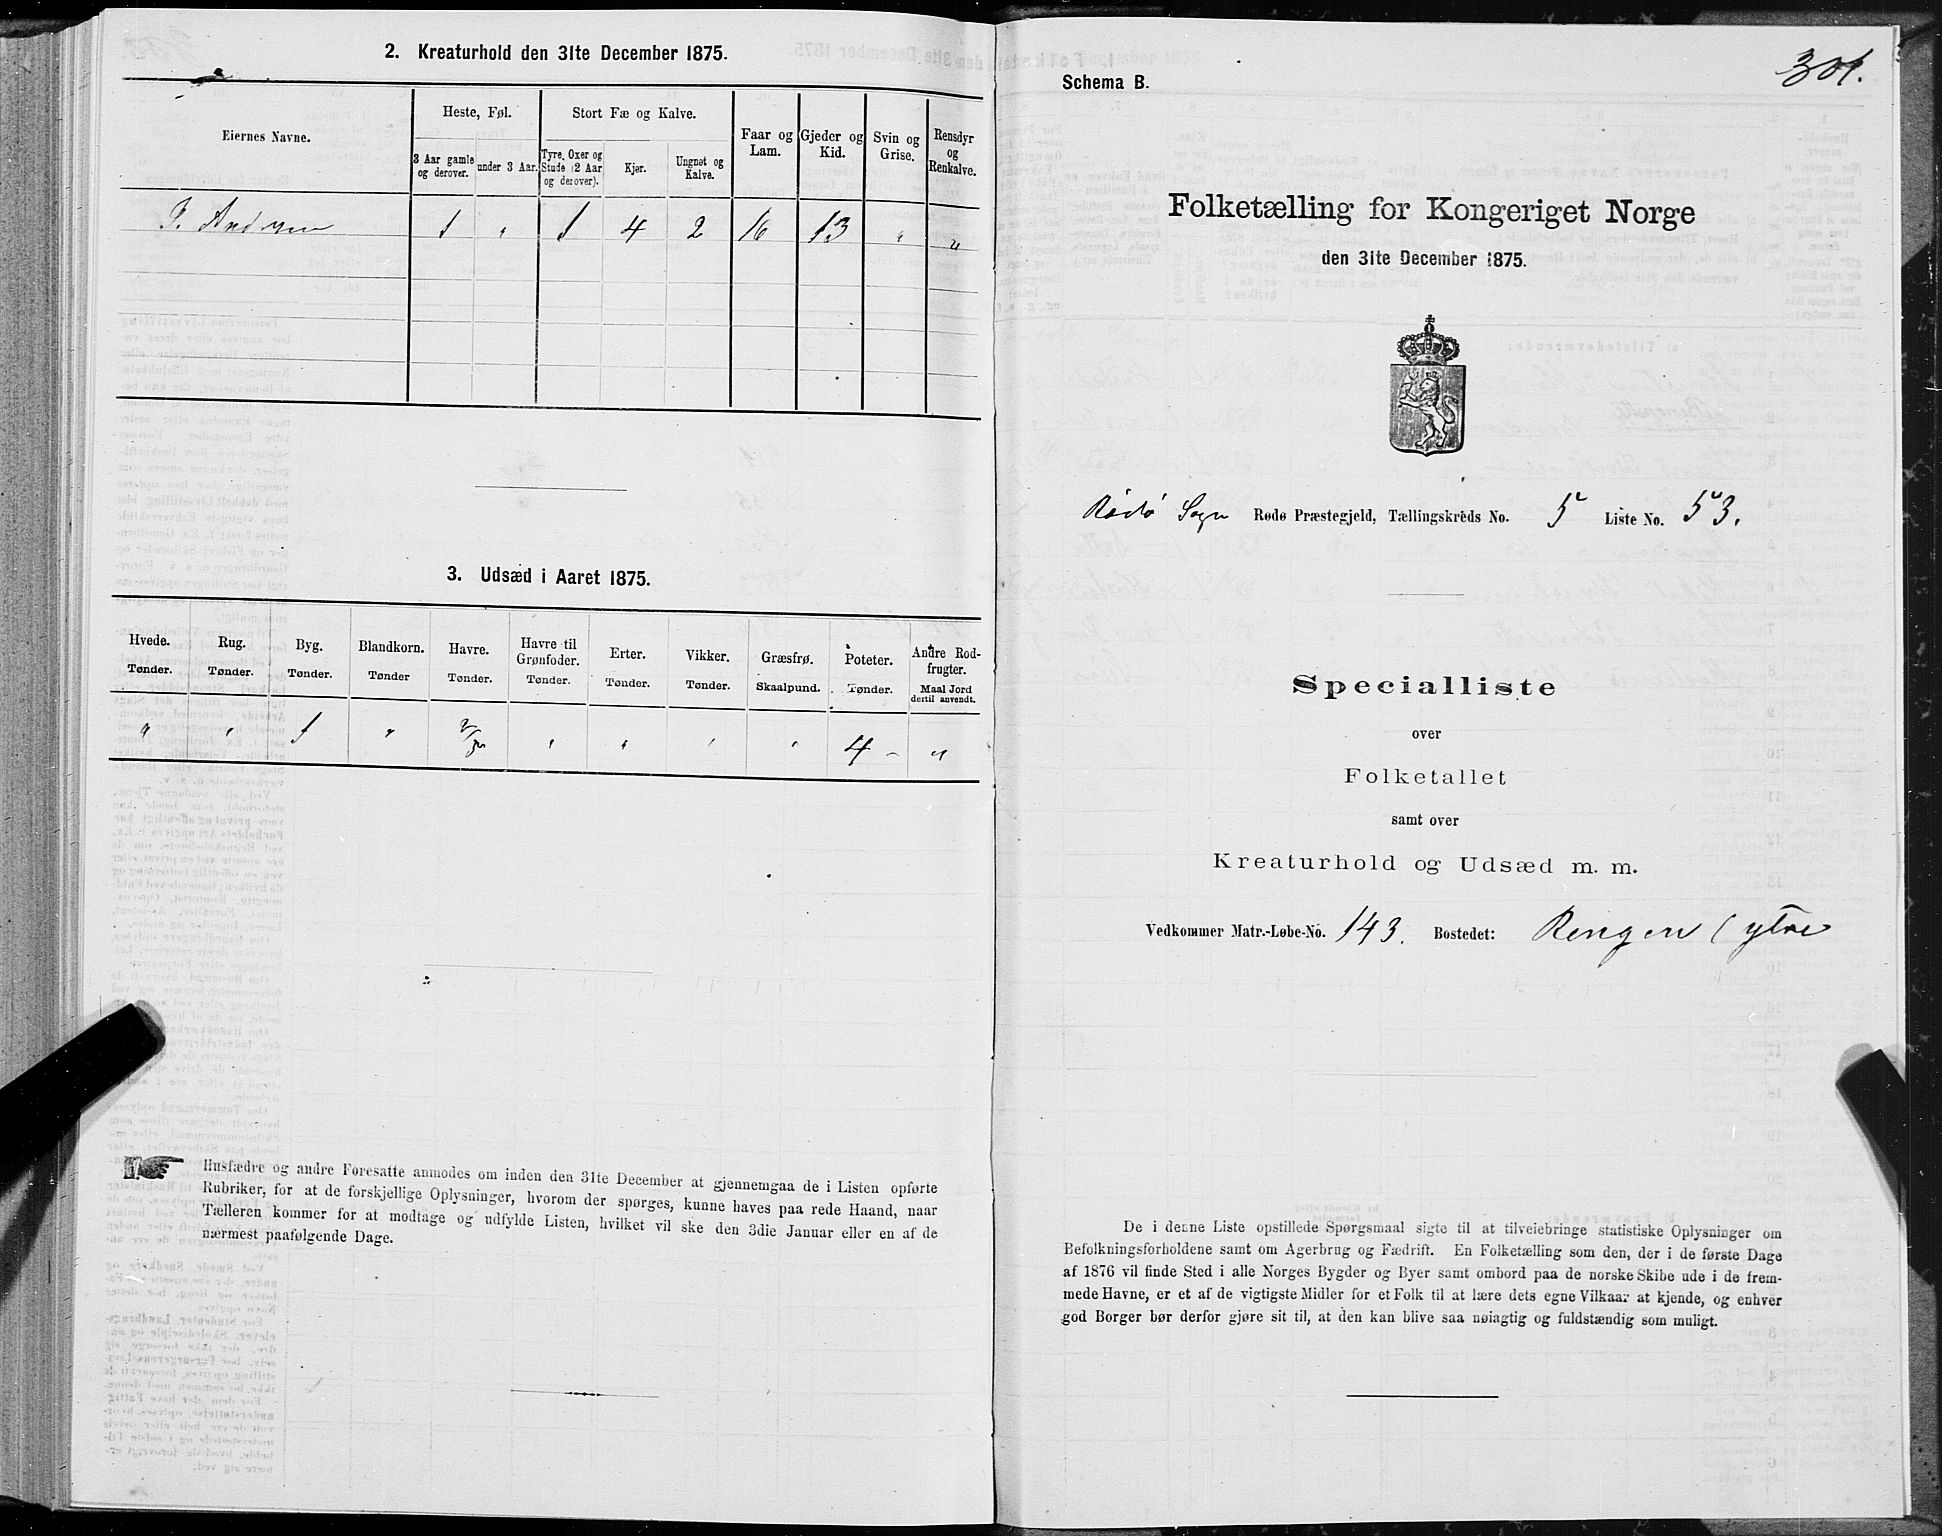 2. Kreaturhold den 31te December 1875.
Eiernes Navne.
Heste, Føl.
Stort Fæ og Kalve.
Faar og Lam.
Gjeder og Kid.
Svin og Grise.
Rensdyr og Renkalve.
3 Aar gamle og derover.
under 3 Aar.
Tyre, Oxer og Stude (2 Aar og derover).
Kjør.
Ungnøt og Kalve.
1 " 1 4 2 16 13 " "
3. Udsæd i Aaret 1875.
Hvede. Rug. Byg. Blandkorn. Havre. Havre til Grønfoder. Erter. Vikker. Græsfrø. Poteter. Andre Rodfrugter.
Tønder. Tønder. Tønder. Tønder Tønder. Tønder. Tønder. Tønder. Skaalpund. Tønder. Maal Jord dertil anvendt.
" " 1 " " " " " 4 - "
Husfædre og andre Foresatte anmodes om inden den 31te December at gjennemgaa de i Listen opførte
Rubriker, for at de forskjellige Oplysninger, hvorom der spørges, kunne haves paa rede Haand, naar
Tælleren kommer for at modtage og udfylde Listen, hvilket vil ske den 3die Januar eller en af de
nærmest paafølgende Dage.
301.
Schema B.
Folketælling for Kongeriget Norge
den 31te December 1875.
Rödö Sogn Rødø Præstegjeld, Tællingskreds No. 5 Liste No. 53.
Specialliste
over
Folketallet
samt over
Kreaturhold og Udsæd m. m.
Vedkommer Matr.-Løbe-No. 143. Bostedet: Rengen (ytre
De i denne Liste opstillede Spørgsmaal sigte til at tilveiebringe statistiske Oplysninger om
Befolkningsforholdene samt om Agerbrug og Fædrift. En Folketælling som den, der i de første Dage
af 1876 vil finde Sted i alle Norges Bygder og Byer samt ombord paa de norske Skibe ude i de frem-
mede Havne, er et af de vigtigste Midler for et Folk til at lære dets egne Vilkaar at kjende, og enhver
god Borger bør derfor gjøre sit til, at den kan blive saa nøiagtig og fuldstændig som muligt.